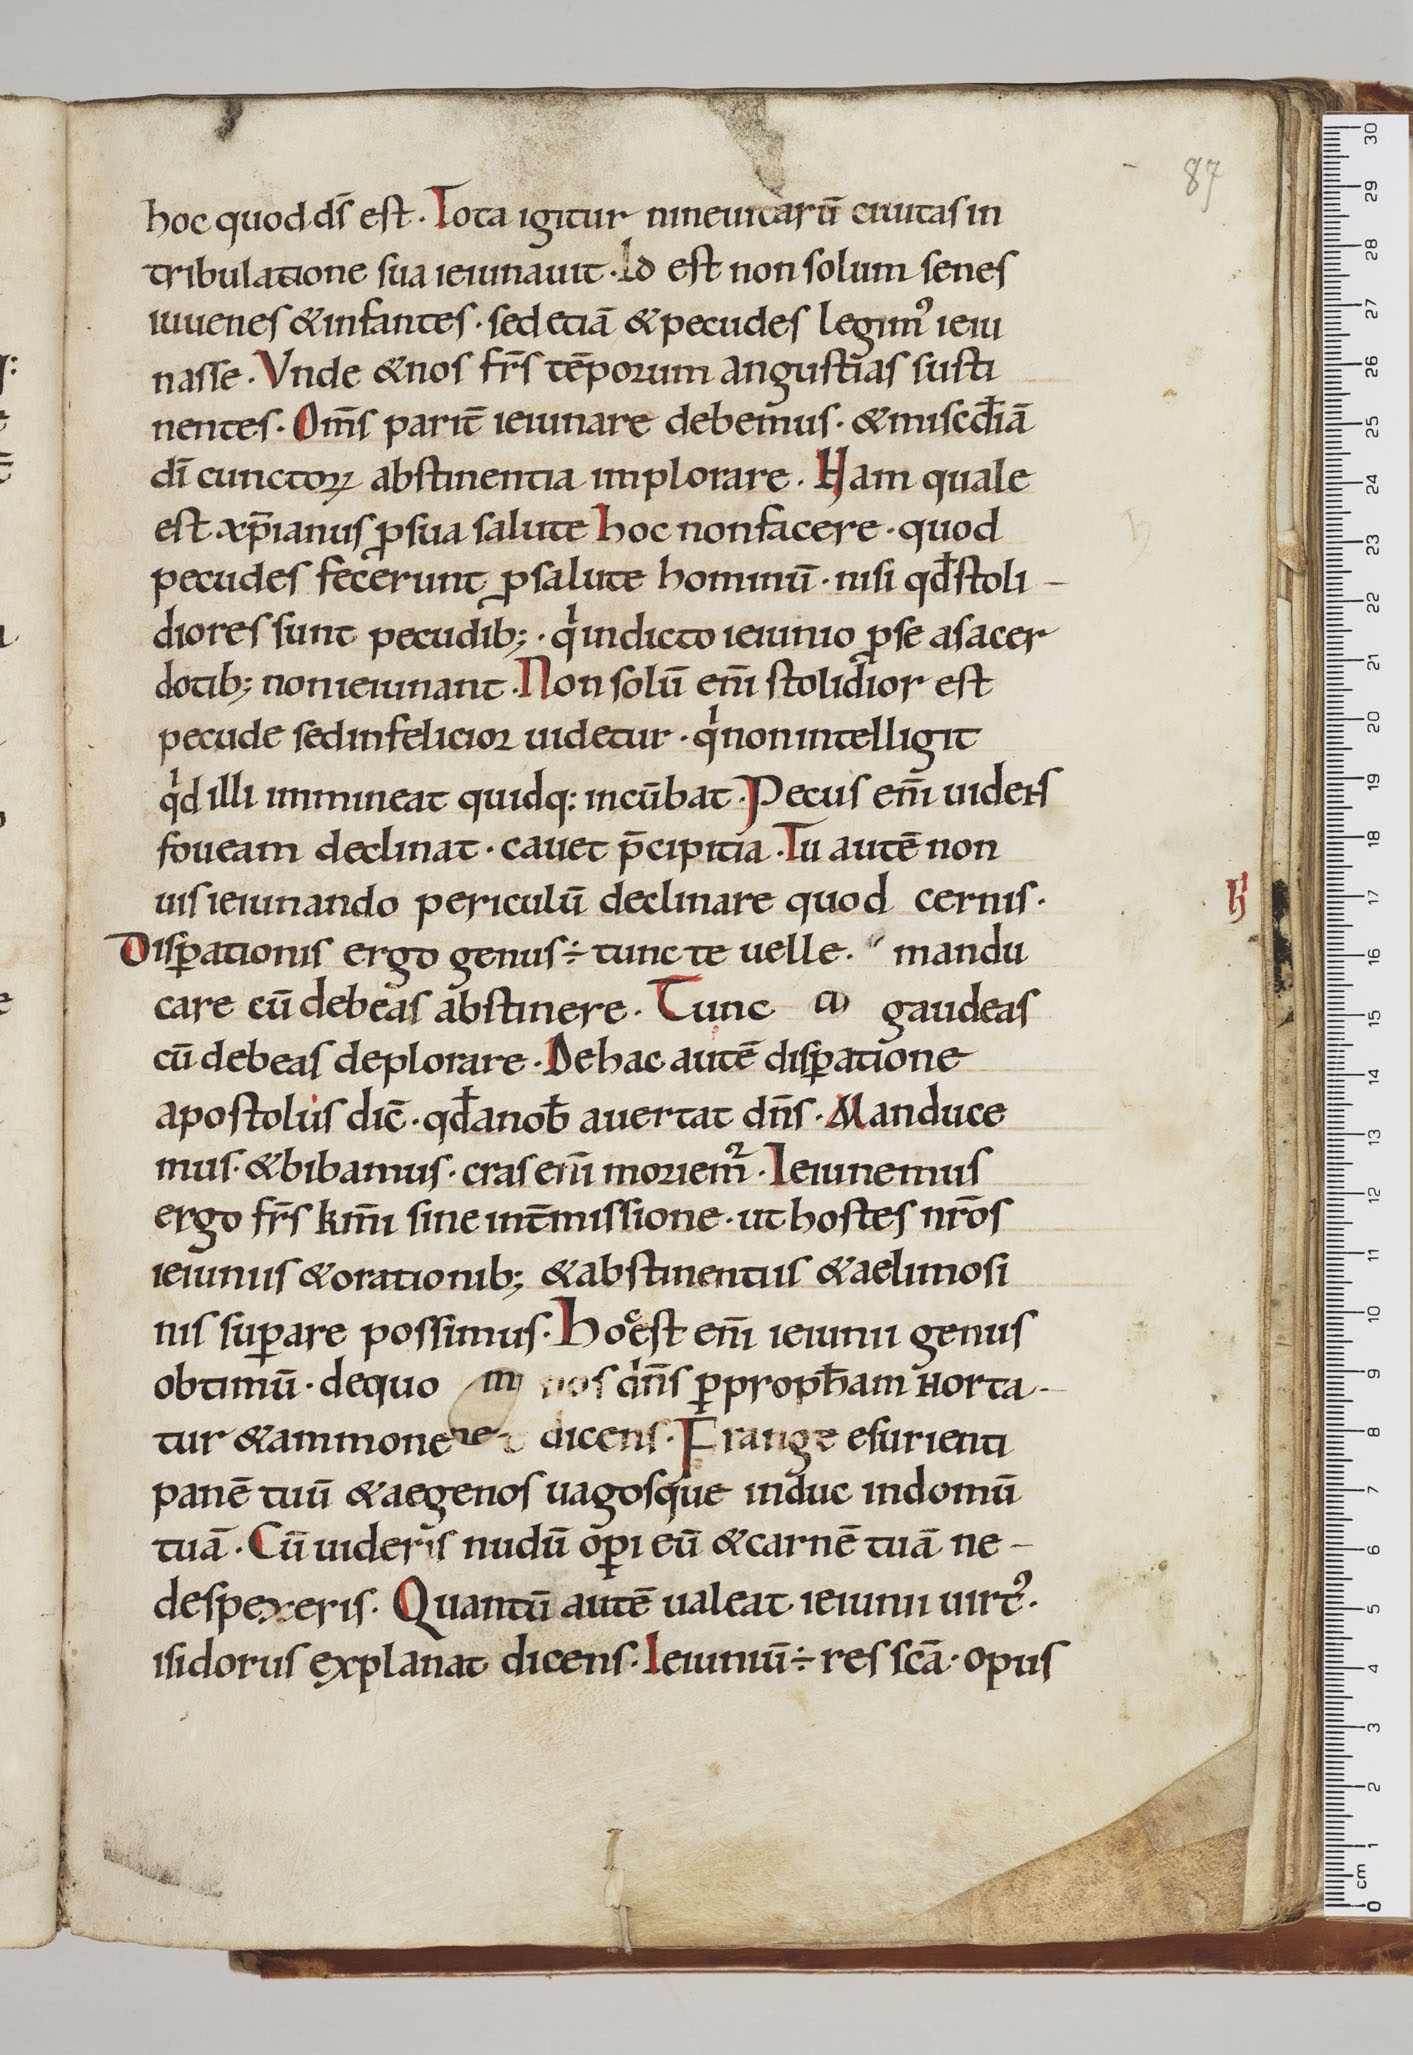 87
hoc quod ds̄ est. Tota igitur nineuitarū ciuitas in
tribulatione sua ieiunauit. Id est non solum senes
iuuenes & infantes. sed etiā & pecudes legim᾽ ieiu
nasse. Vnde & nos frs̄ tēporum angustias susti
nentes. Om̄s parit̄ ieiunare debemus. & misc̄d̄iā
dī cunctoꝝ abstinentia implorare. Nam quale
est xp̄ianus ꝓ sua salute hoc non facere. quod
pecudes fecerunt ꝓ salute hominū. nisi qd̄ stoli-
diores sunt pecudib;. qͥ indicto ieiunio ꝓ se a sacer
dotib; non ieiunant. Non solū em̄ stolidior est
pecude sed infelicior uidetur. qͥ non intelligit
qͥd illi immineat quidq: incūbat. Pecus em̄ uidens
foueam declinat. cauet p̄cipitia. Tu autē non
uis ieiunando periculū declinare quod cernis.
Disꝑationis ergo genus ÷ tunc te uelle. mandu
care cū debeas abstinere. Tunc cū gaudeas
cū debeas deplorare. De hac autē disꝑatione
apostolus dic̄. qd̄ a nob̄ auertat dn̄s. Manduce
mus. & bibamus. cras em̄ moriem̄ᷣ. Ieiunemus
ergo frs̄ km̄i sine int̄missione. ut hostes nr̄os
ieiuniis & orationib; & abstinentiis & aelimosi
nis suꝑare possimus. Hoc est em̄ ieiunii genus
obtimū. de quo nos dn̄s ꝑ proph̄am horta-
tur & ammonet dicens. Frange esurienti
panē tuū & aegenos uagosque induc in domū
tuā. Cū uideris nudū oꝑi eū & carnē tuā ne-
despexeris. Quantū autē ualeat ieiunii uirt᾽.
isidorus explanat dicens. Ieiuniū ÷ res scā. opus